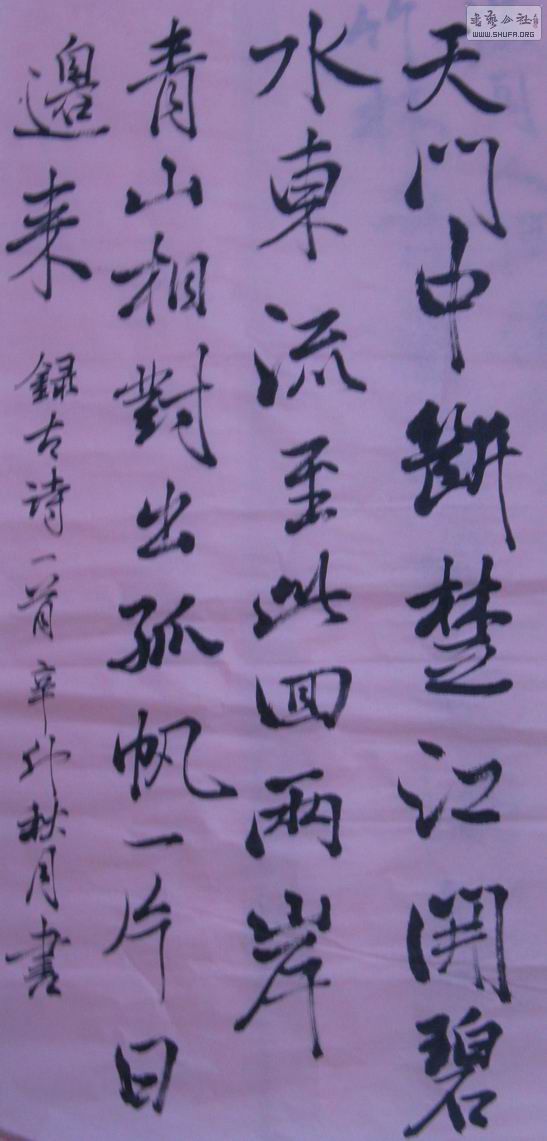 天門中斷楚江開碧
水東流至此回兩岸
青山相對出孤帆一片日
邊来
録古诗一首辛卯秋月書
書藝公社
WWW.SHUFA.ORG